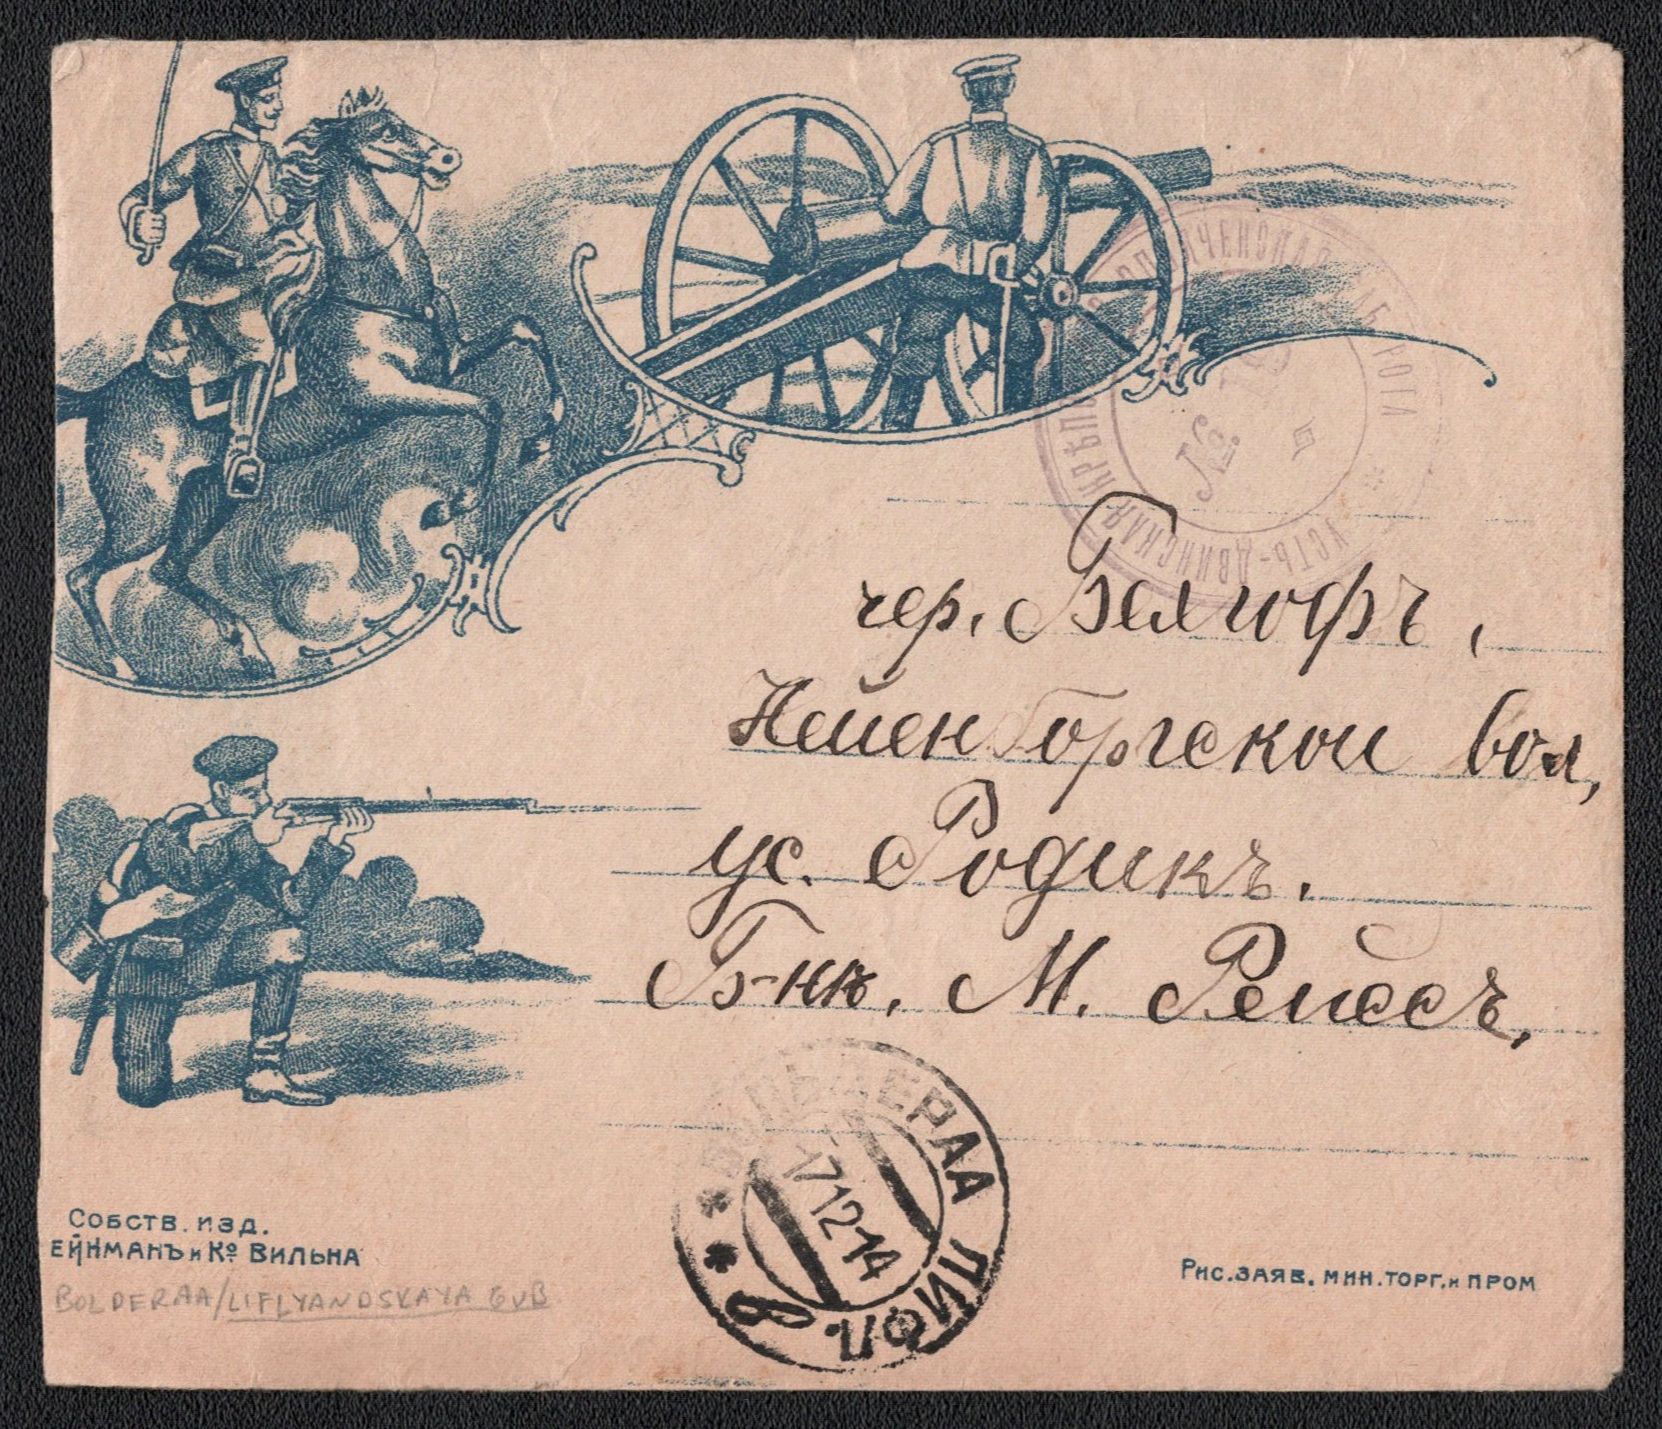 УСТЬ-ДВИНСКАЯ КРѢП
№
чер. Белгофъ,
Нейенборгской вол,
ус. Родикъ.
Б-ннѣ. М. Рейсъ,
БОЛЬДЕРАА ЛИФЛ. в
17 12 14
СОБСТВ. ИЗД.
ЕЙНМАНЪ и Ко ВИЛЬНА
BOLDERAA/LIFLYANDSKAYA GUB
РИС. ЗАЯВ. МИН. ТОРГ. и ПРОМ